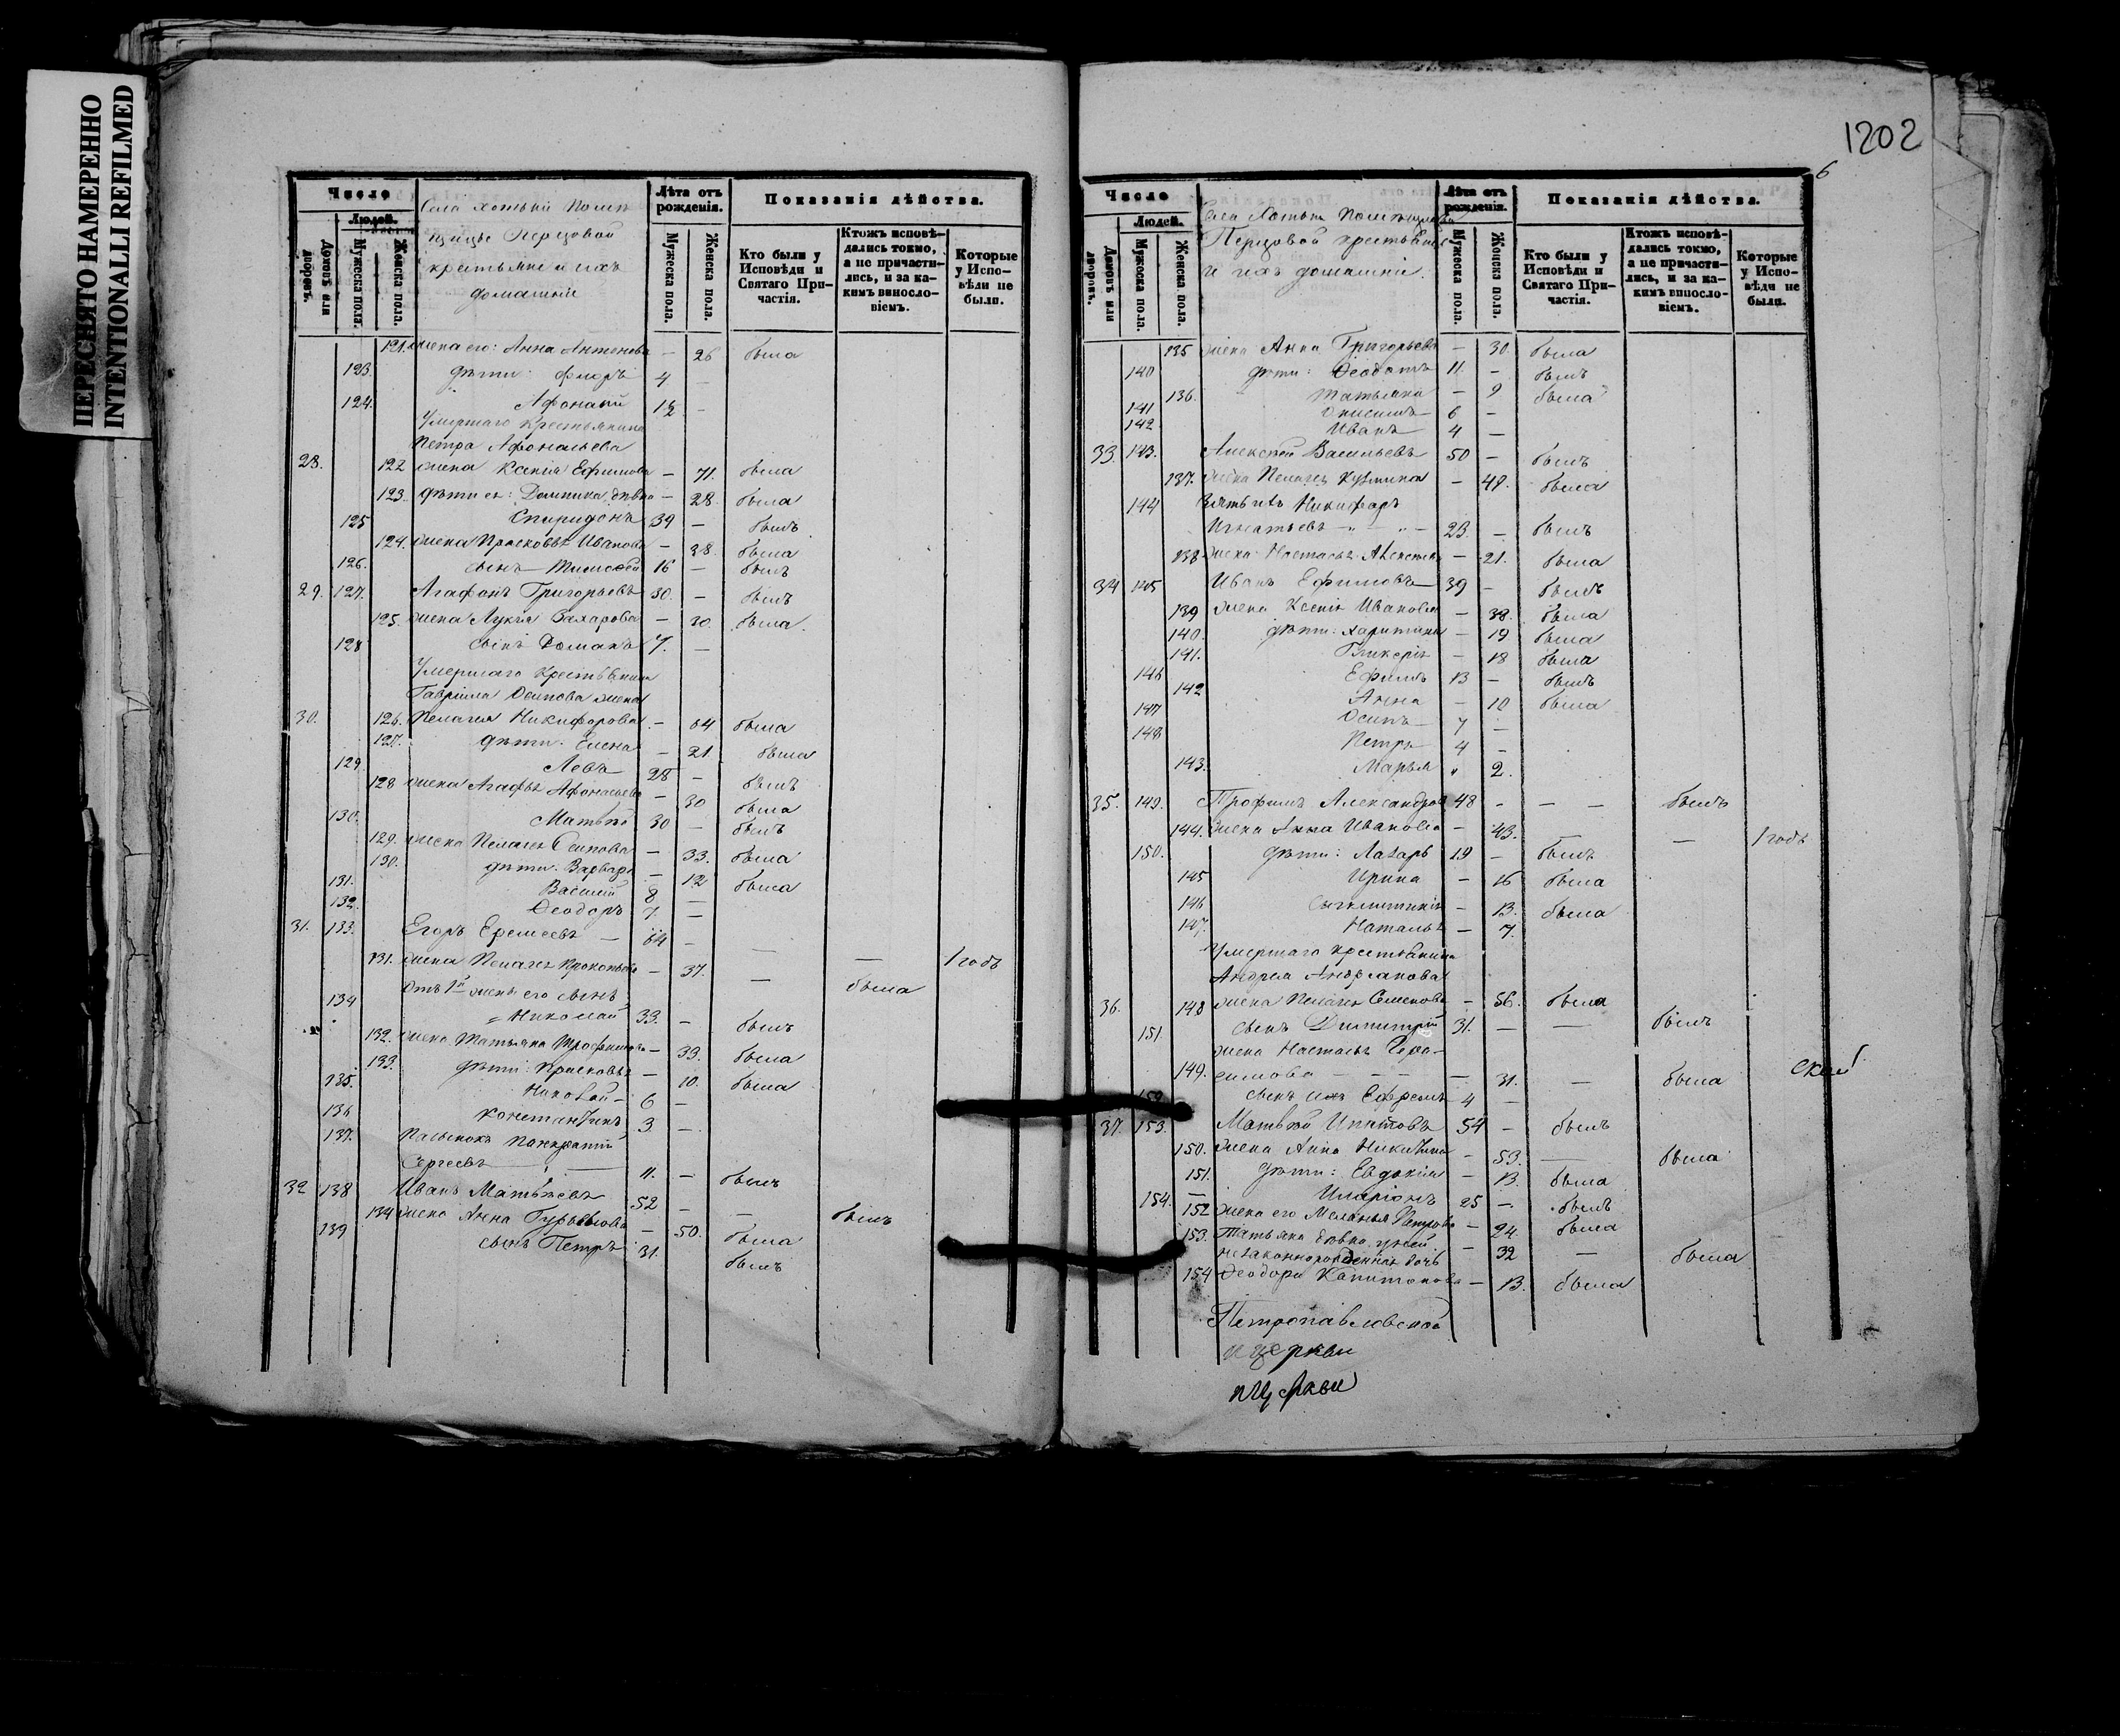 ПЕРЕСНЯТО НАМЕРЕННО
INTENTIONALLI REFILMED
Число
Людей.
Домовъ или дворовъ.
Мужеска пола.
Женска пола.
Села Хотьни Помѣ
щицы Перцовой
крестьяне и ихъ
домашніе
Лѣта отъ рожденія.
Мужеска пола.
Женска пола.
Показанія дѣйства.
Кто были у Исповѣди и Святаго Причастія.
Ктожъ исповѣдались токмо, а не причастились, и за какимъ винословіемъ.
Которые у Исповѣди не были.
121. жена его: Анна Антонова — 26 была
123. дѣти: 4 —
124. Афонасій 1½ —
Умершаго Крестьянина
Петра Афонасьева
28. 122 жена Ксенія Ефимова — 71. была
123. дѣти ея: Домника дѣвка — 28. была
125 Спиридонъ 39 — былъ
124. жена Прасковья Иванова — 38. была
126. сынъ Тимоѳей 16 — былъ
29. 127. Агафонъ Григорьевъ 30. — былъ
125. жена Лукія Захарова — 30. была
128 сынъ Романъ 7. —
Умершаго Крестьянина
Гавріила Осипова жена
30. 126. Пелагея Никифорова — 64 была
127. дѣти: Елена — 21 была
129. Левъ 28 — былъ
128 жена Агафья Афонасьева — 30 была
130. Матвѣй 30 — былъ
129. жена Пелагея Осипова — 33. была
130. дѣти: Варвара — 12 была
131. Василій 8 —
132. Ѳеодоръ 7. —
31. 133. Егоръ Еремеевъ — 64 — — — 1 годъ
131. жена Пелагея Прокопьева — 37. — была
Отъ 1й жены его сынъ
134 Николай 33. — былъ
132. жена Татьяна Трофимова — 33. была
133. дѣти: Прасковья — 10. была
135. Николай — 6 —
136 Константинъ 3 —
137. Пасынокъ Панкратій
Сергеевъ — 11. — былъ
32 138 Иванъ Матвѣевъ 52 — — былъ
134 жена Анна Гурьянова — 50. была
139 сынъ Петръ 31. былъ
1202
6
Число
Людей.
Домовъ или дворовъ.
Мужеска пола.
Женска пола.
Села Хотьни Помѣщицы
Перцовой крестьяне
и ихъ домашніе.
Лѣта отъ рожденія.
Мужеска пола.
Женска пола.
Показанія дѣйства.
Кто были у Исповѣди и Святаго Причастія.
Ктожъ исповѣдались токмо, а не причастились, и за какимъ винословіемъ.
Которые у Исповѣди не были.
135 жена Анна Григорьева — 30. была
140 дѣти: Ѳеодотъ 11. — былъ
136. Татьяна — 9 была
141 Онисимъ 6 —
142 Иванъ 4 —
33. 143. Алексѣй Васильевъ 50 — былъ
137. жена Пелагея Кузмина — 48. была
144 Зять ихъ Никифоръ
Игнатьевъ 23. — былъ
138 жена Настасья Алексѣева — 21. была
34 145 Иванъ Ефимовъ 39 — былъ
139 жена Ксенія Иванова — 38. была
140. дѣти: Харитина — 19 была
141. Гликерія — 18 была
146 Ефимъ 13 — былъ
142 Анна — 10 была
147 Осипъ 7 —
148 Петръ 4 —
143. Марья " 2.
35. 149. Трофимъ Александровъ 48 — — — былъ
144. жена Анна Иванова — 43. — — 1 годъ
150. дѣти: Лазарь 19 — былъ
145 Ирина — 16 была
146 — 13. была
147. Наталья — 7.
Умершаго крестьянина
Андрея Андреанова
36. 148 жена Пелагея Семенова — 56. была
151. сынъ Димитрій 31. — — былъ
жена Настасья Гера-
149. симова — — — 31. — была
152. сынъ ихъ Ефремъ 4 —
37. 153. Матвѣй Ипатовъ 54 — былъ
150. жена Анна Никитина — 53. — была
151. дѣти: Евдокія — 13. была
154. Иларіонъ 25 — былъ
152 жена его Меланья Петрова — 24. была
153. Татьяна дѣвка у ней — 32 — была
незаконнорожденная дочь
154 Ѳеодора Капитонова — 13. была
ской
Петропавловской
и церкви
церкви